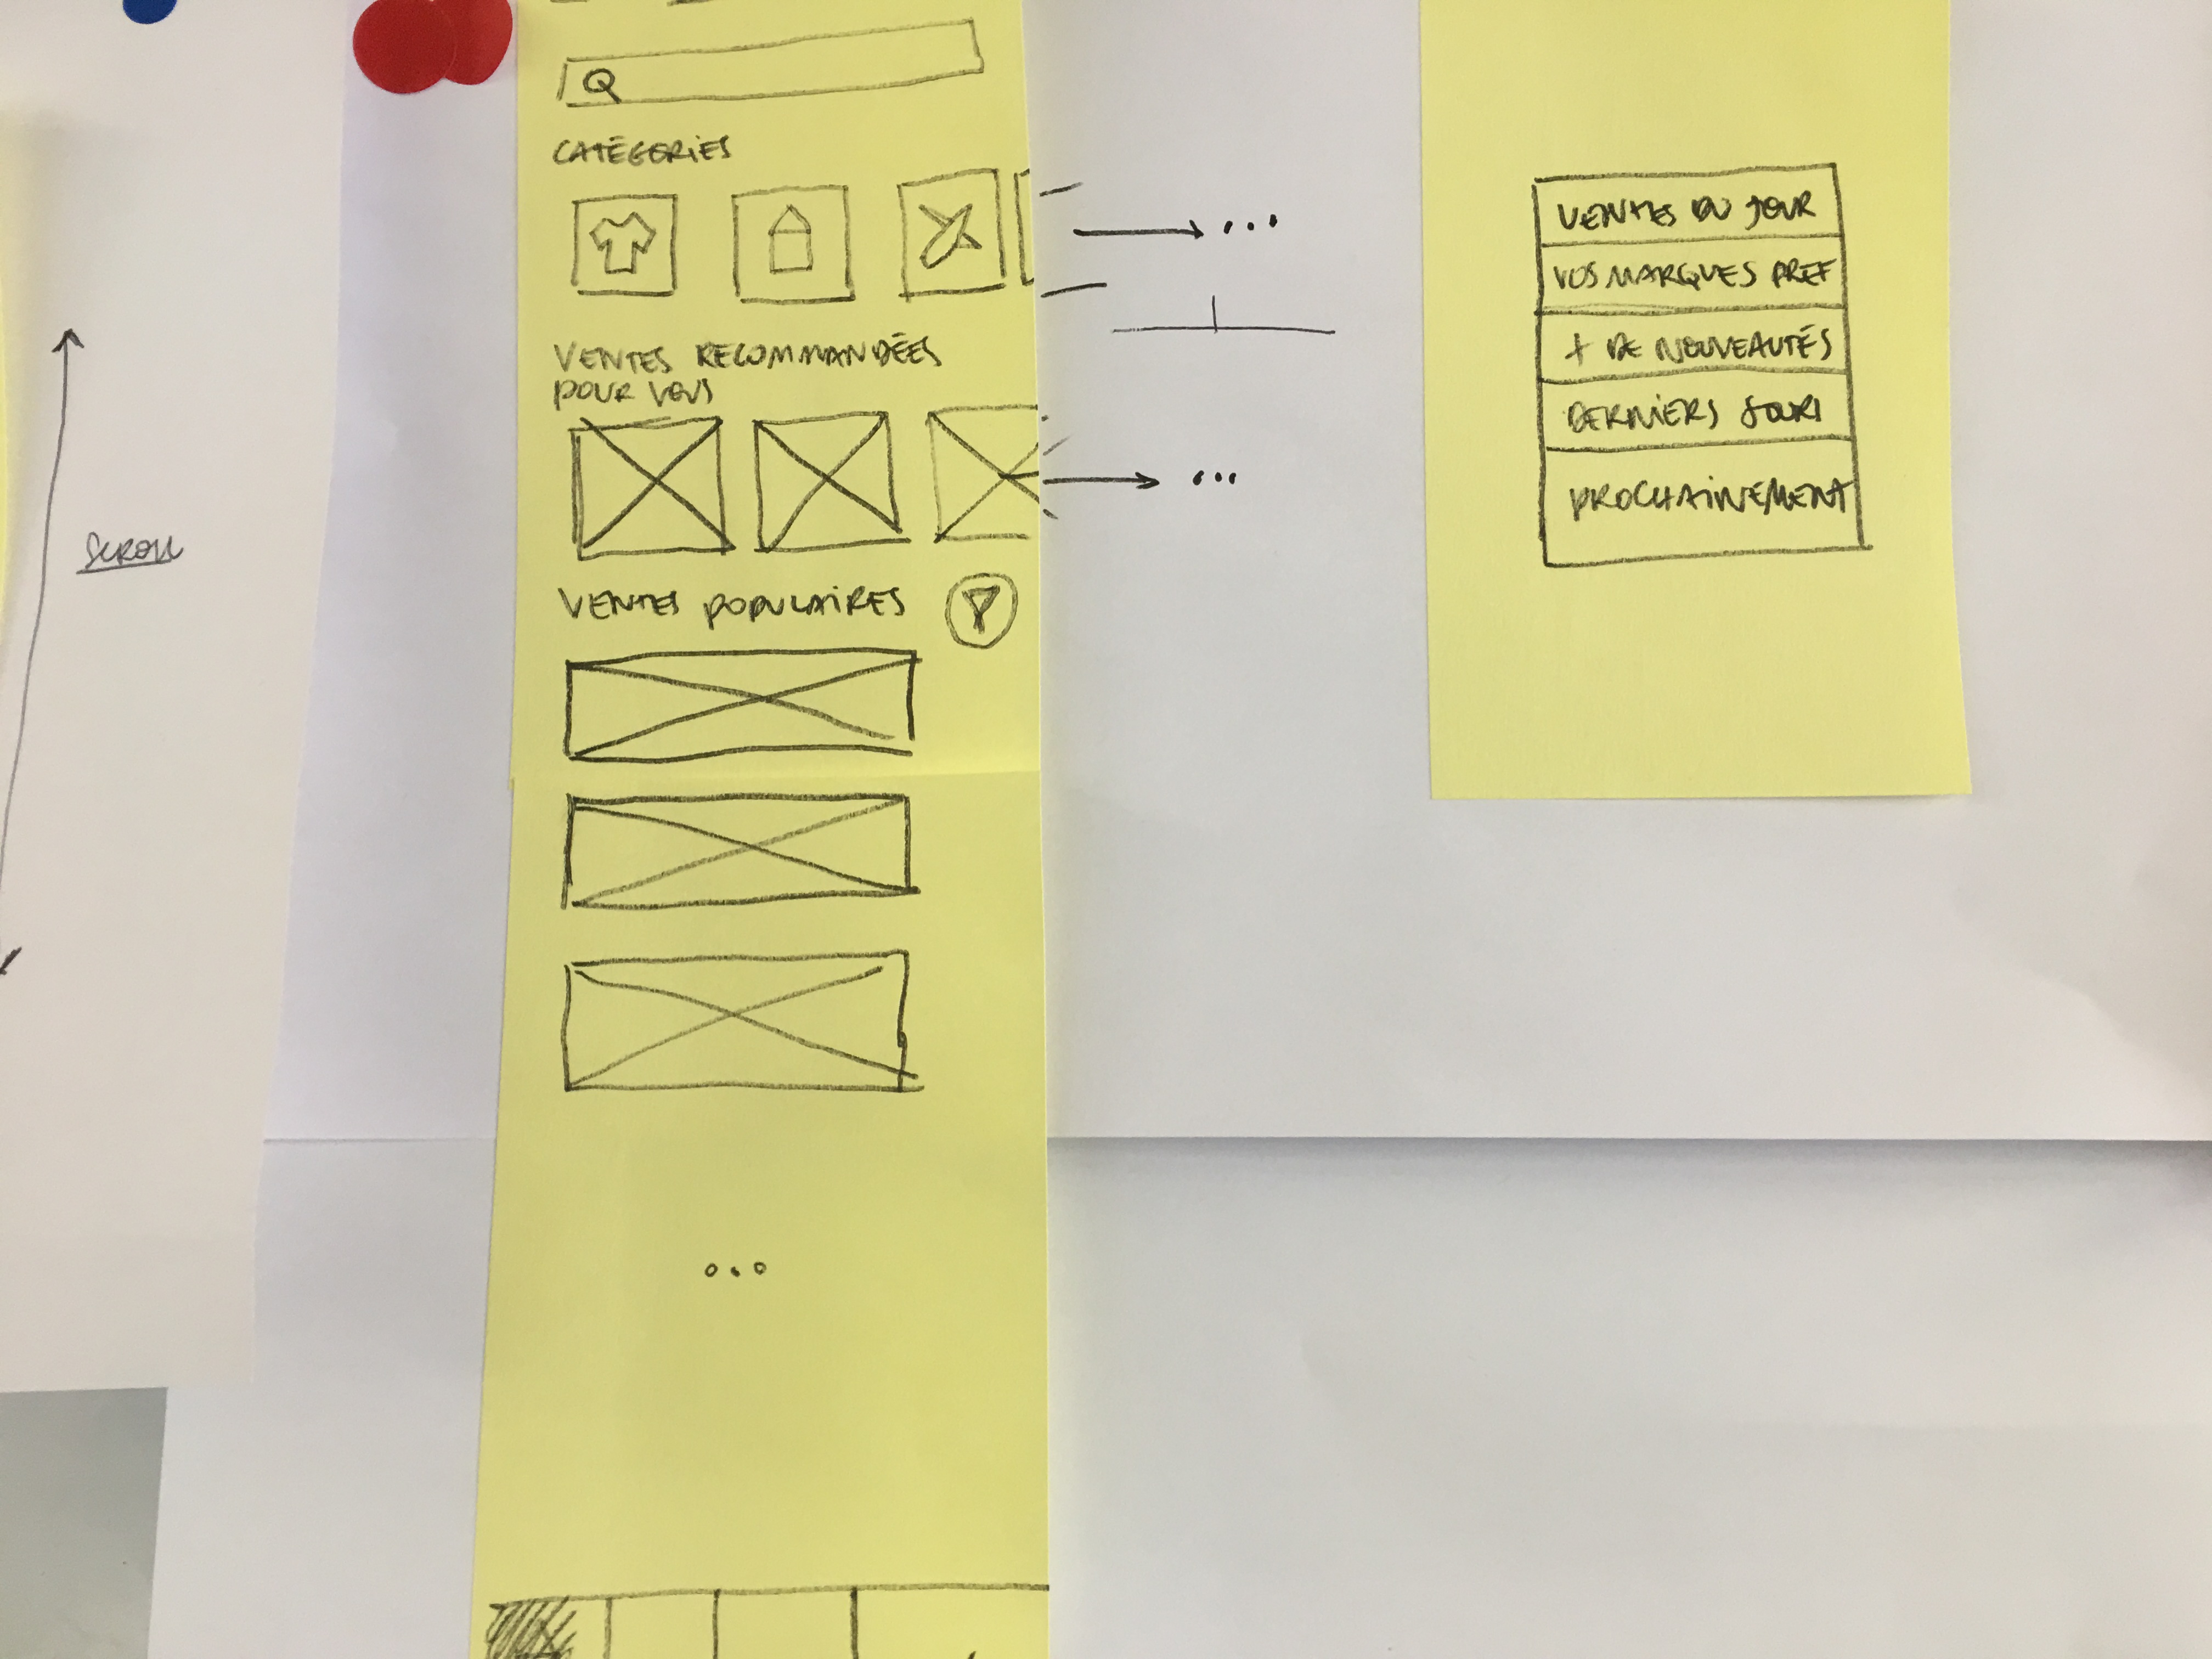 SCROLL
CATÉGORIES
VENTES RECOMMANDÉES
POUR VOUS
VENTES POPULAIRES
VENTES DU JOUR
VOS MARQUES PREF
+ DE NOUVEAUTÉS
DERNIERS JOURS
PROCHAINEMENT